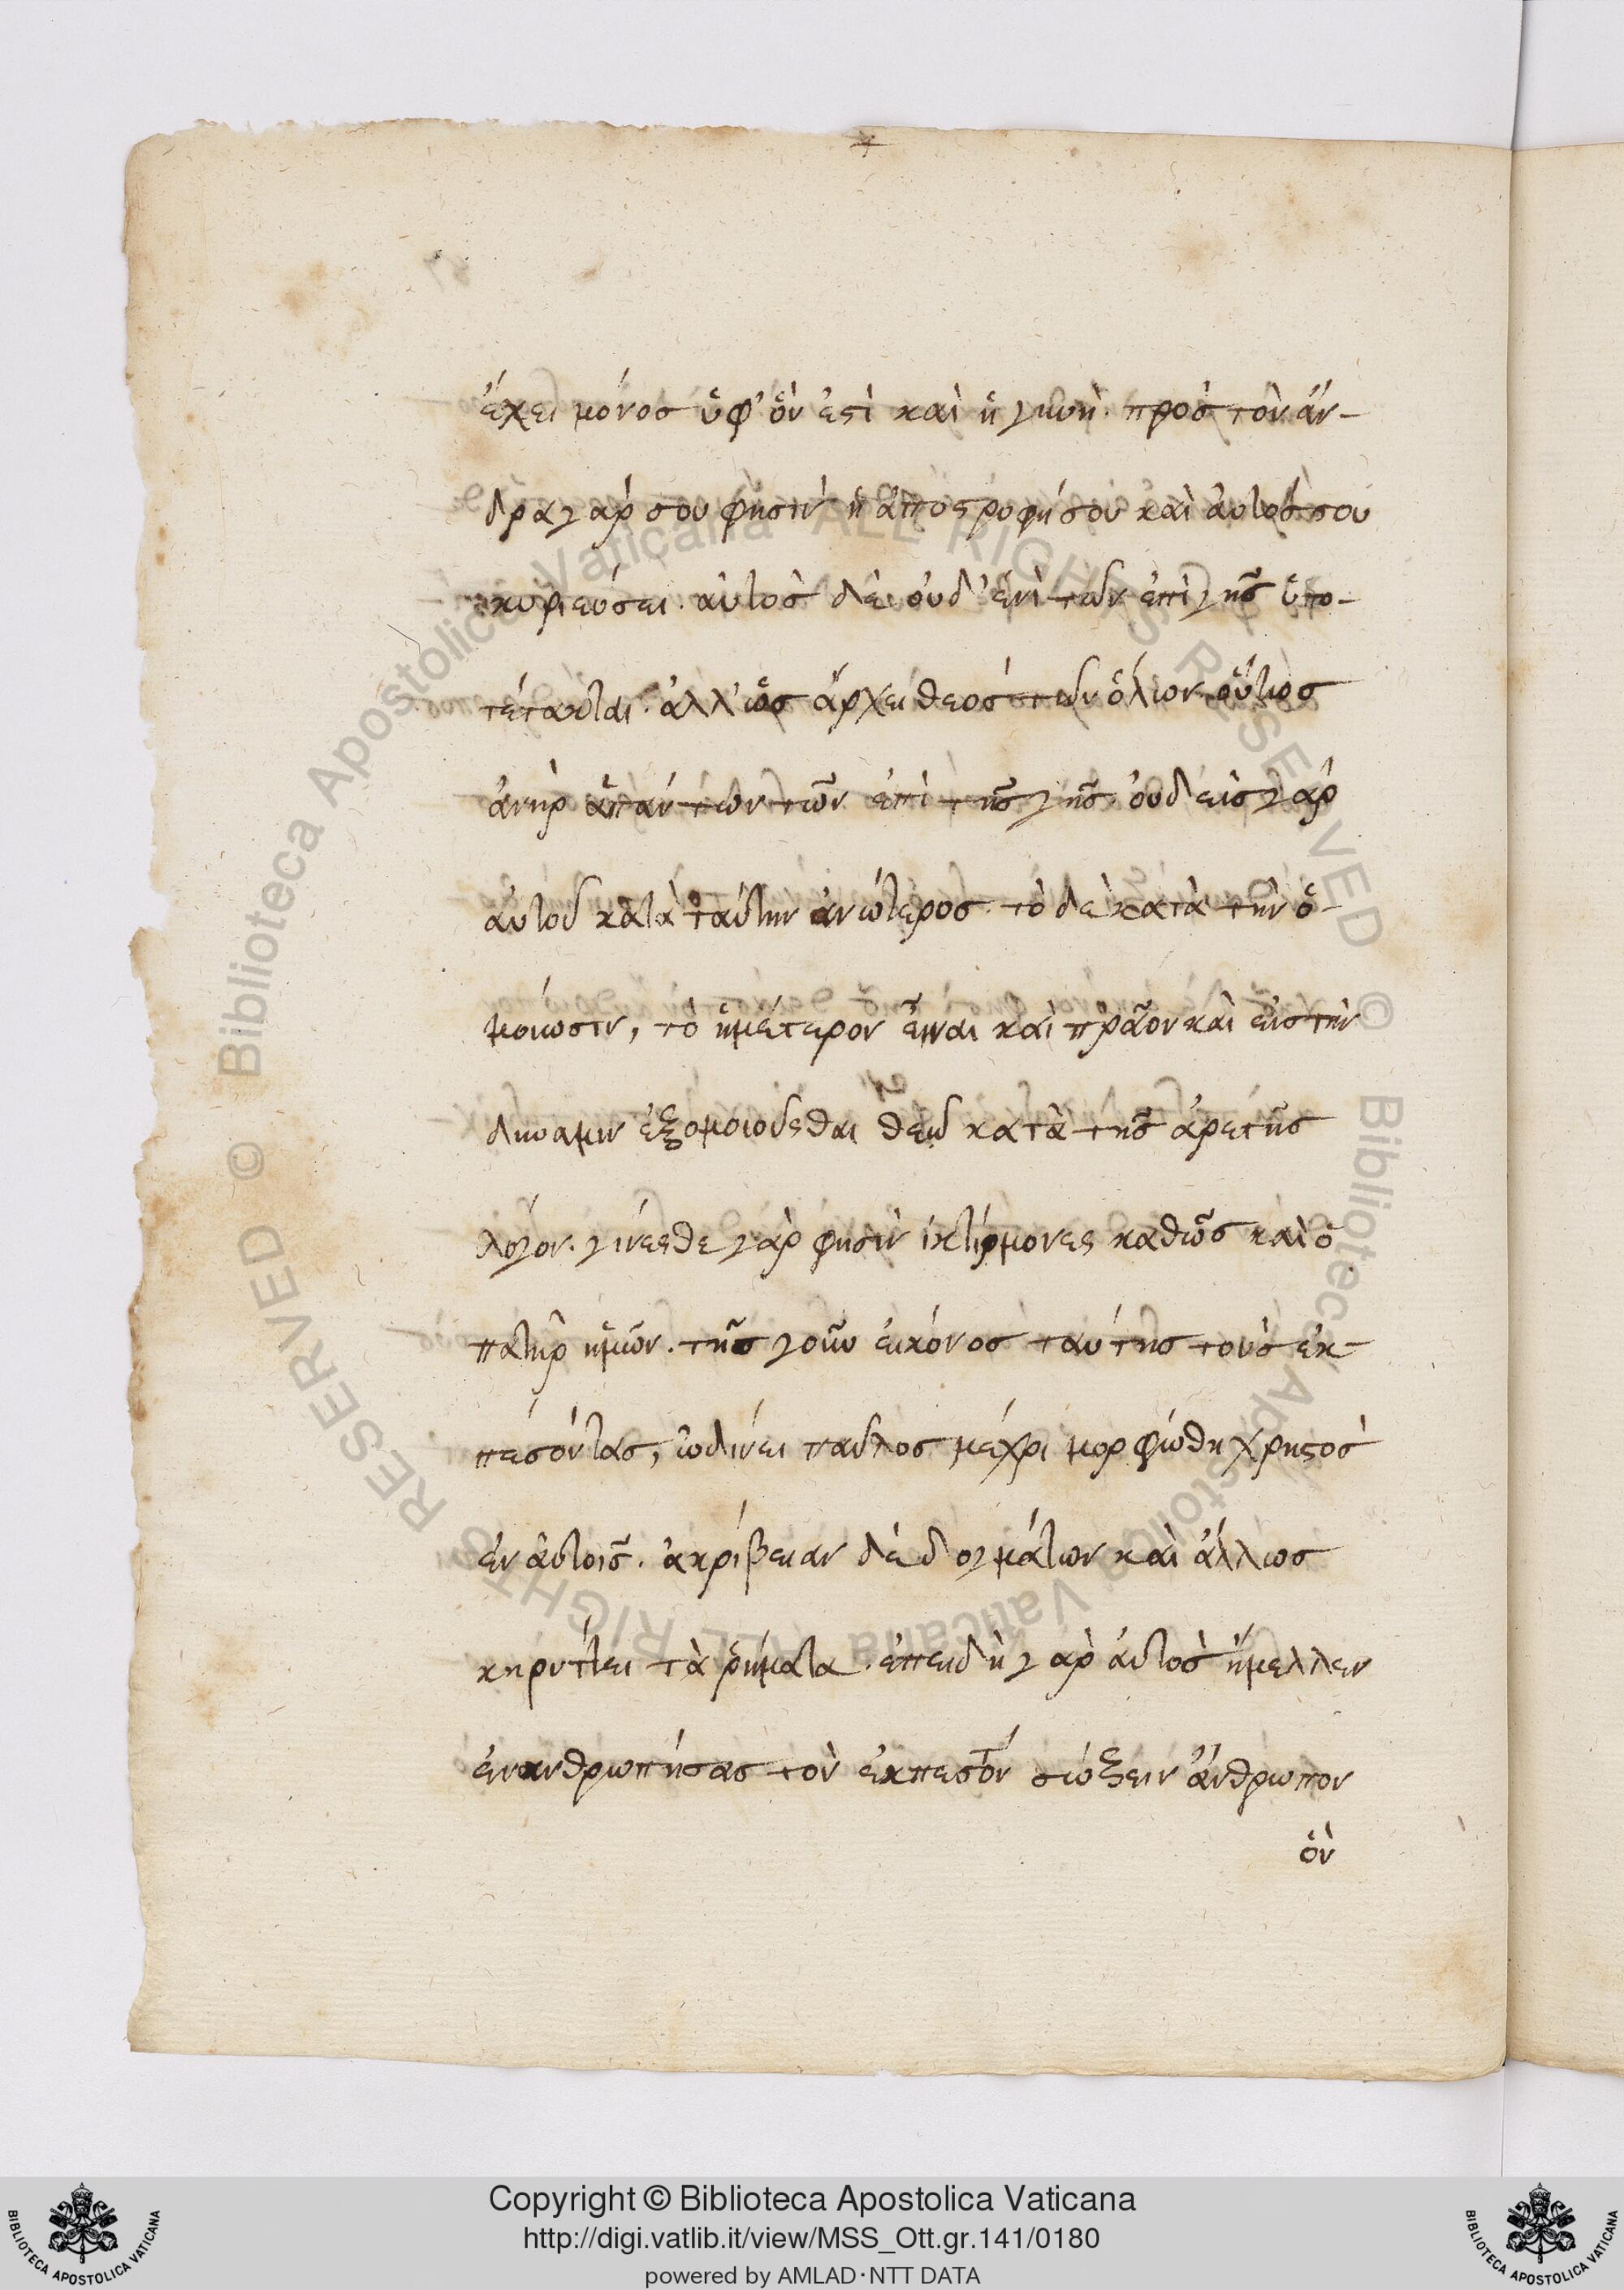 *
ἔχει μόνος ὑφ' ὃν ἐστὶ καὶ ἡ γυνὴ. πρὸς τὸν ἄν-
δρα γάρ σου φησὶν ἡ ἀποστροφή σου καὶ αὐτός σου
κυριεύσει. αὐτὸς δὲ οὐδ' ἑνὶ τῶν ἐπὶ γῆς ὑπο-
τέτακται. ἀλλ' ὡς ἄρχει θεὸς τῶν ὅλων οὕτως
ἀνὴρ ἁπάντων τῶν ἐπὶ τῆς γῆς. οὐδεὶς γὰρ
αὐτοῦ κατὰ ταύτην ἀνώτερος. τὸ δὲ κατὰ τὴν ὁ-
μοίωσιν, τὸ ἡμέτερον εἶναι καὶ πρᾶον καὶ εἰς τὴν
δύναμιν ἐξομοιοῦσθαι θεῷ κατὰ τῆς ἀρετῆς
λόγον. γίνεσθε γὰρ φησὶν ἰκτίρμονες καθὼς καὶ ὁ
πατὴρ ἡμῶν. τῆς γοῦν εἰκόνος ταύτης τοὺς ἐκ-
πεσόντας, ὠδίνει παῦλος μέχρι μορφώθη χρηστὸς
ἐν αὐτοῖς. ἀκρίβειαν δὲ δογμάτων καὶ ἄλλως
κηρύττει τὰ ῥήματα. ἐπειδὴ γὰρ αὐτὸς ἤμελλεν
ἐνανθρωπήσας τὸν ἐκπεσόντ σώξειν ἄνθρωπον
ὃν
Copyright © Biblioteca Apostolica Vaticana
http://digi.vatlib.it/view/MSS_Ott.gr.141/0180
powered by AMLAD·NTT DATA
BIBLIOTECA APOSTOLICA VATICANA
BIBLIOTECA APOSTOLICA VATICANA
© Biblioteca Apostolica Vaticana ALL RIGHTS RESERVED
© Biblioteca Apostolica Vaticana ALL RIGHTS RESERVED